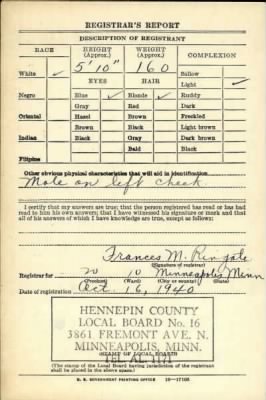 REGISTRAR'S REPORT
DESCRIPTION OF REGISTRANT
RACE HEIGHT (Approx.) WEIGHT (Approx.) COMPLEXION
5' 10" 160 Sallow
White ✓ EYES HAIR Light ✓
Negro Blue ✓ Blonde ✓ Ruddy
Gray Red Dark
Oriental Hazel Brown Freckled
Brown Black Light brown
Indian Black Gray Dark brown
Bald Black
Filipino
Other obvious physical characteristics that will aid in identification
Mole on left cheek
I certify that my answers are true; that the person registered has read or has had
read to him his own answers; that I have witnessed his signature or mark and that
all of his answers of which I have knowledge are true, except as follows:
Frances M.
(Signature of registrar)
Registrar for 20 10 Minneapolis Minn
(Precinct) (Ward) (City or county) (State)
Date of registration Oct. 16, 1940
HENNEPIN COUNTY
LOCAL BOARD No. 16
3861 FREMONT AVE. N.
MINNEAPOLIS, MINN.
(STAMP OF LOCAL BOARD)
TEL. AL. 1171
(The stamp of the Local Board having jurisdiction of the registrant
shall be placed in the above space.)
U. S. GOVERNMENT PRINTING OFFICE 16—17105